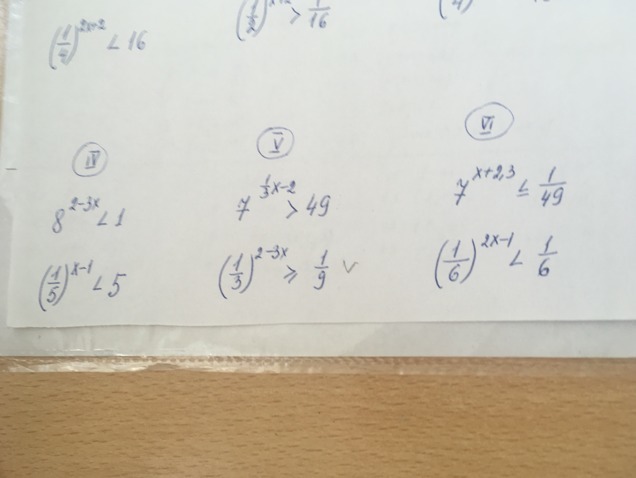 (1/4)^(2x+2) < 16
(1/2)^(x+2) > 1/16
IV
8^(2-3x) < 1
(1/5)^(x-1) < 5
V
7^(1/3x-2) > 49
(1/3)^(2-3x) ≥ 1/9 ✓
VI
7^(x+2,3) ≤ 1/49
(1/6)^(2x-1) < 1/6